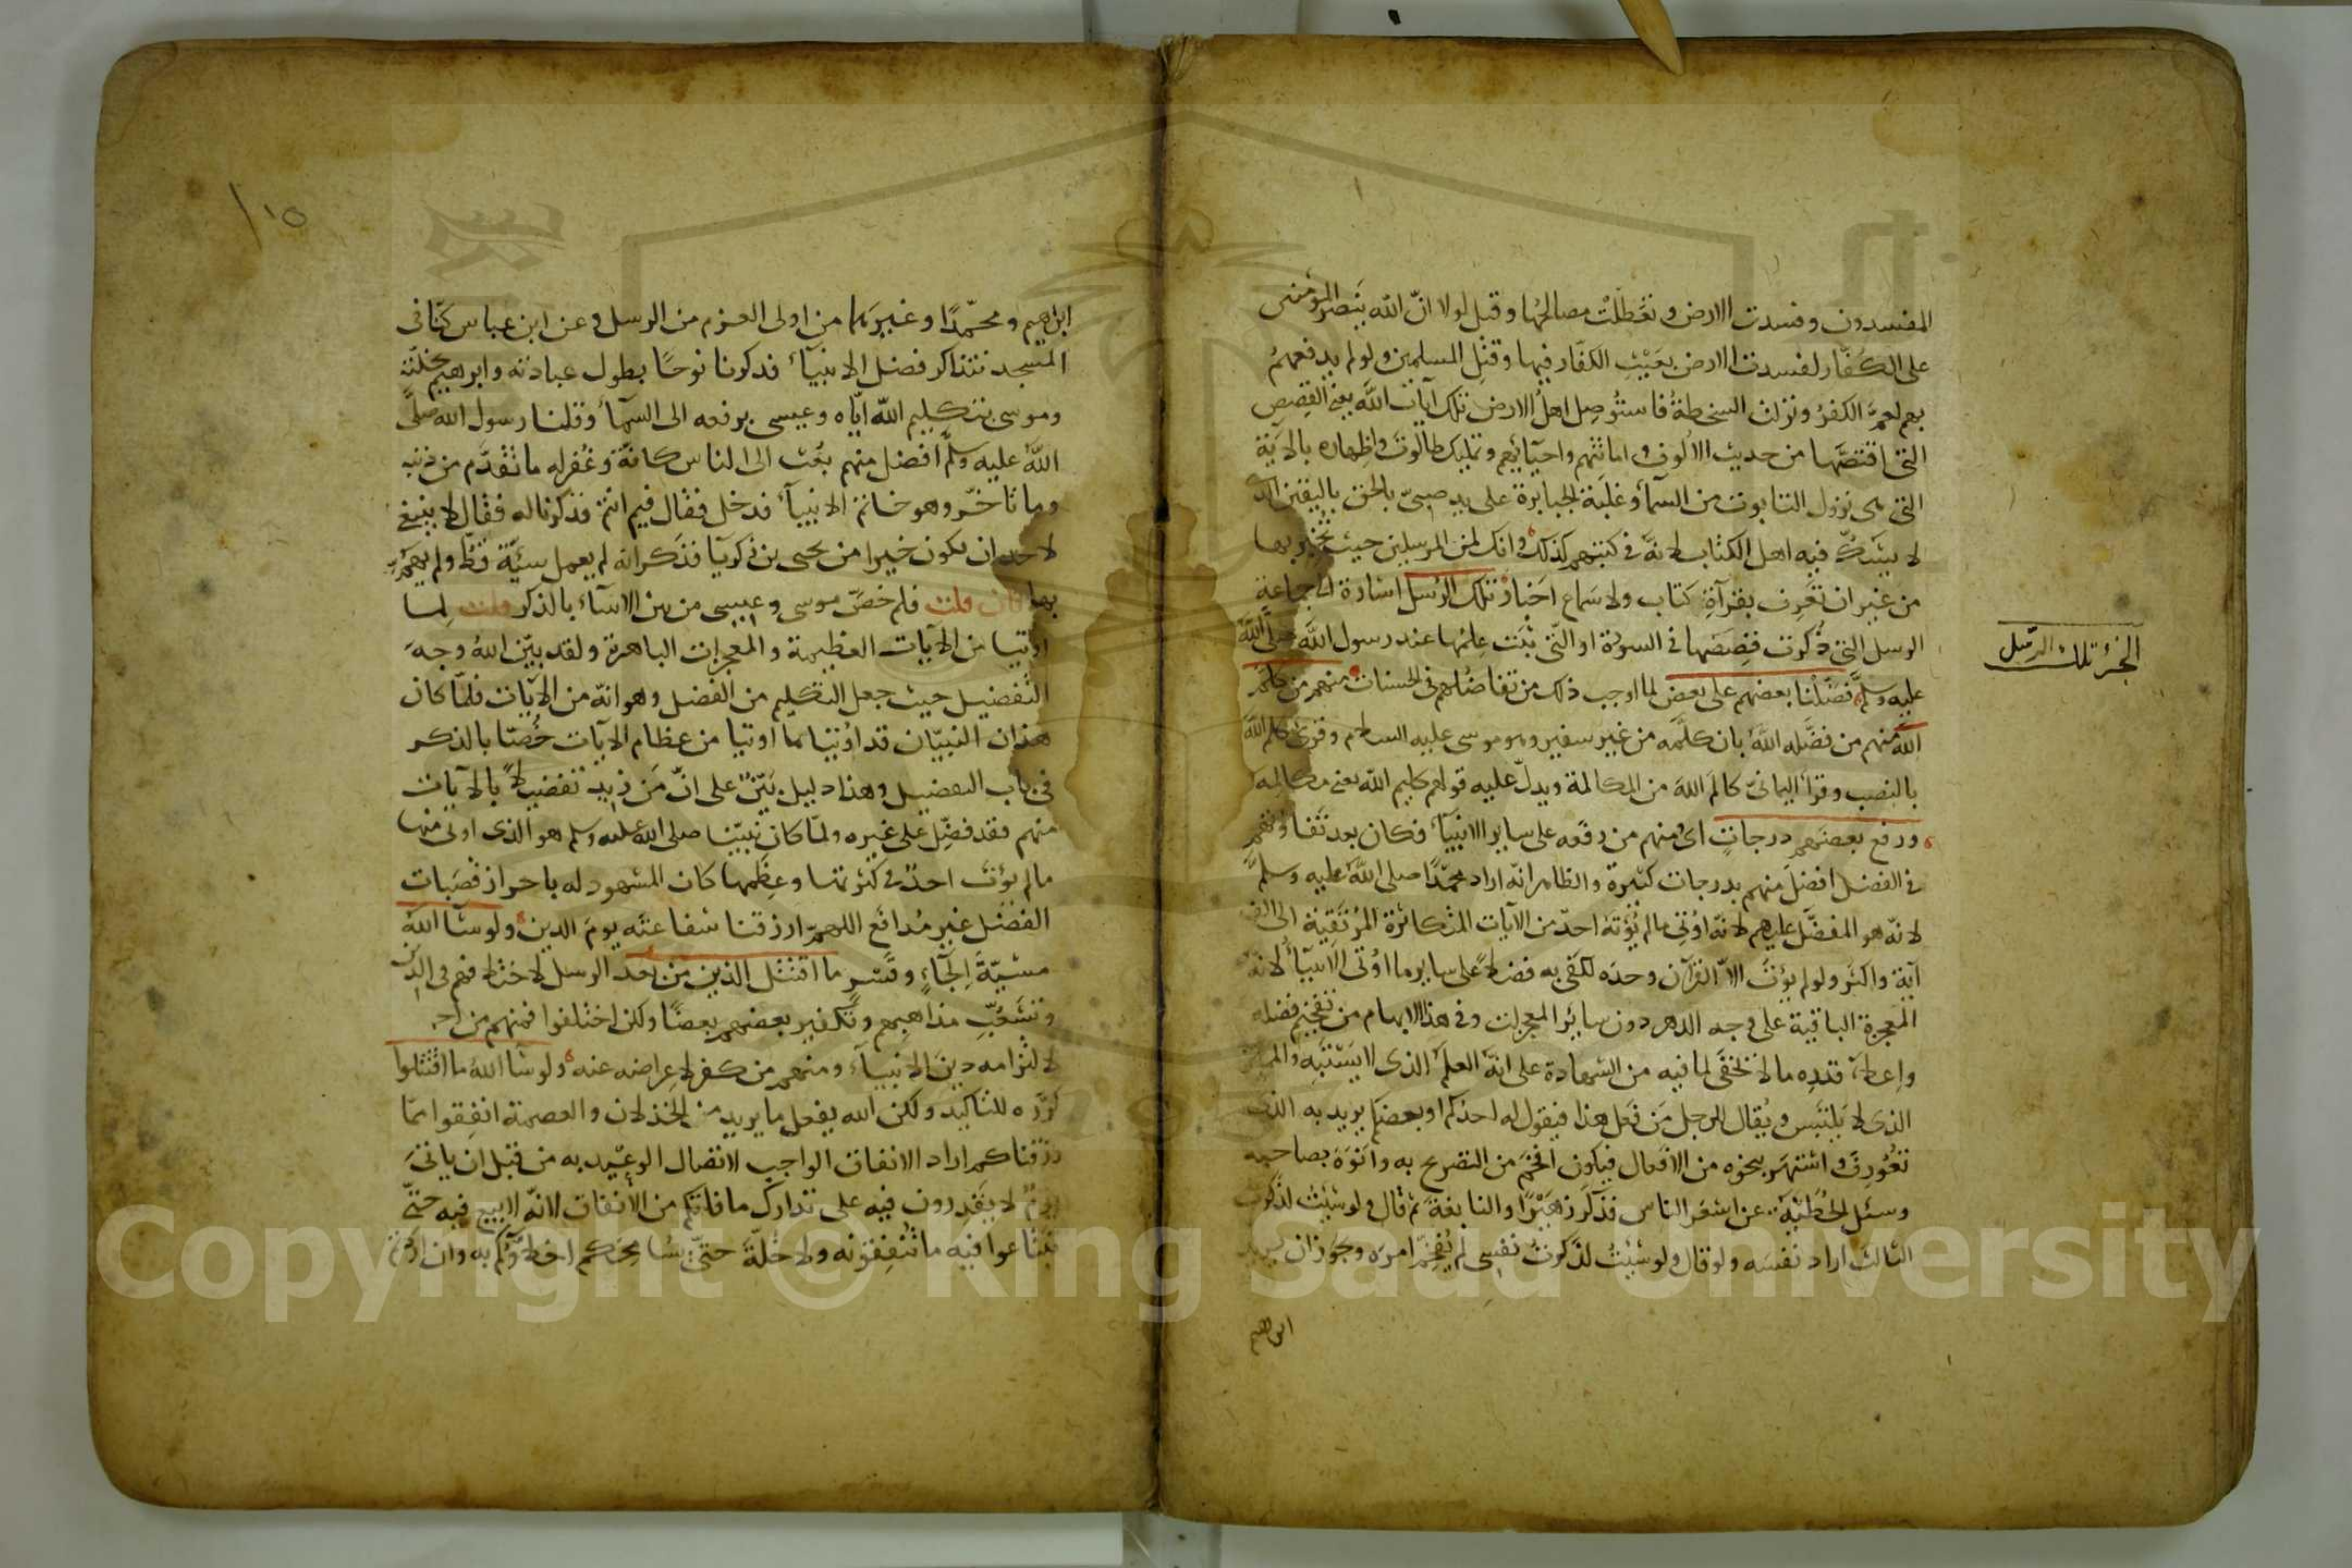 المفسدون وفسدت الارض وتعطلت مصالحها وقيل لولا انّ الله ينصر المؤمنين
على الكفّار لفسدت الارض بعَيْثِ الكفّار فيها وقتل المسلمين ولو لم يدفعهم
بهم لعمّ الكفرُ ونزلت السخطةُ فاستُوصِل اهلُ الارض تلك آيات الله يعنى القصص
التى اقتصّها من حديث الالوف واماتتهم واحيآئهم وتمليك طالوتَ واظهاره بالآية
التى هى نزول التابوت من السمآء وغلبة الجبابرة على يد صبىّ بالحق باليقين الذى
لا يشكّ فيه اهل الكتاب لانه فى كتبهم كذلك وانك لمن المرسلين حيث تخبر بها
من غير ان تعرف بقرآءة كتاب ولا سماع اخبار تلك الرسل اشارة الى جماعة
الجزء تلك الرسل
الرسل التى ذُكرت قصصها فى السورة او التى ثبت علمها عند رسول الله صلى الله
عليه وسلم فضّلنا بعضهم على بعض لما اوجب ذلك من تفاضلهم فى الحسنات منهم من كلّم
الله منهم من فضّله الله بان كلّمه من غير سفير وهو موسى عليه السلام وقرئ كلم الله
بالنصب وقرأ اليمانىّ كالم الله من المكالمة ويدلّ عليه قولهم كليم الله بمعنى مكالمه
ورفع بعضهم درجات اى ومنهم من رفعه على ساير الانبيآء فكان بعد تفاوتهم
فى الفضل افضل منهم بدرجات كثيرة والظاهر انه اراد محمّدًا صلى الله عليه وسلم
لانه هو المفضّل عليهم لانه اوتى ما لم يؤته احدٌ من الآيات المتكاثرة المرتقية الى الف
آية واكثر ولو لم يؤت الا القرآن وحده لكفى به فضلا على ساير ما اوتى الانبيآء لانه
المعجزة الباقية على وجه الدهر دون سائر المعجزات وفى هذا الابهام من تفخيم فضله
واعلاء قدره ما لا يخفى لما فيه من الشهادة على انه العلم الذى لا يشتبه والمميّز
الذى لا يلتبس ويُقال للرجل مَن فعل هذا فيقول له احدكم او بعضكم يريد به الذى
تعورف واشتهر بنحوه من الافعال فيكون افخم من التصريح به وانوَه بصاحبه
وسئل الحطيئة عن اشعر الناس فذكر زهيرًا والنابغة ثم قال ولو شئت لذكرت
الثالث اراد نفسه ولو قال ولو شئتُ لذكرتُ نفسى لم يُفخّم امره وجوز ان يريد
ابراهيم
١٥
ابراهيم ومحمّدًا وغيرهما من اولى العزم من الرسل وعن ابن عباس كنّا فى
المسجد نتذاكر فضل الانبيآء فذكرنا نوحًا بطول عبادته وابرهيم بخلّته
وموسى بتكليم الله ايّاه وعيسى برفعه الى السمآء وقلنا رسول الله صلى
الله عليه وسلم افضل منهم بُعث الى الناس كافّة وغُفر له ما تقدّم من ذنبه
وما تأخّر وهو خاتم الانبيآء فدخل فقال فيم انتم فذكرنا له فقال لا ينبغى
لاحد ان يكون خيرا من يحيى بن زكريّا فذكر انه لم يعمل سيّئة قطّ ولم يهمّ
بها فان قلت فلم خصّ موسى وعيسى من بين الانبياء بالذكر قلت لما
اوتيا من الآيات العظيمة والمعجزات الباهرة ولقد بيّن الله وجه
التفضيل حيث جعل التكليم من الفضل وهو انه من الآيات فلمّا كان
هذان النبيّان قد اوتيا ما اوتيا من عظام الآيات خُصّا بالذكر
فى باب التفضيل وهذا دليل بيّن على انّ مَن زِيد تفضيلا بالآيات
منهم فقد فضّل على غيره ولمّا كان نبيّنا صلى الله عليه وسلم هو الذى اوتى منها
ما لم يؤت احدٌ فى كثرتها وعظمها كان المشهود له باحراز قصبات
الفضل غير مُدافَع اللهمّ ارزقنا شفاعته يوم الدين ولو شآء الله
مشيّة الجآء وقسر ما اقتتل الذين من بعد الرسل لاختلافهم فى الدين
وتشعّب مذاهبهم وتكفير بعضهم بعضًا ولكن اختلفوا فمنهم من آمن
لالتزامه دين الانبيآء ومنهم من كفر لاعراضه عنه ولو شآء الله ما اقتتلوا
كرّره للتأكيد ولكن الله يفعل ما يريد من الخذلان والعصمة انفقوا ممّا
رزقناكم اراد الانفاق الواجب لاتصال الوعيد به من قبل ان يأتى
يومٌ لا يقدرون فيه على تدارك ما فاتكم من الانفاق لانّه لا بيع فيه حتّى
تبتاعوا فيه ما تنفقونه ولا خلّة حتىّ يسامحكم اخلاؤكم به وان اردتم